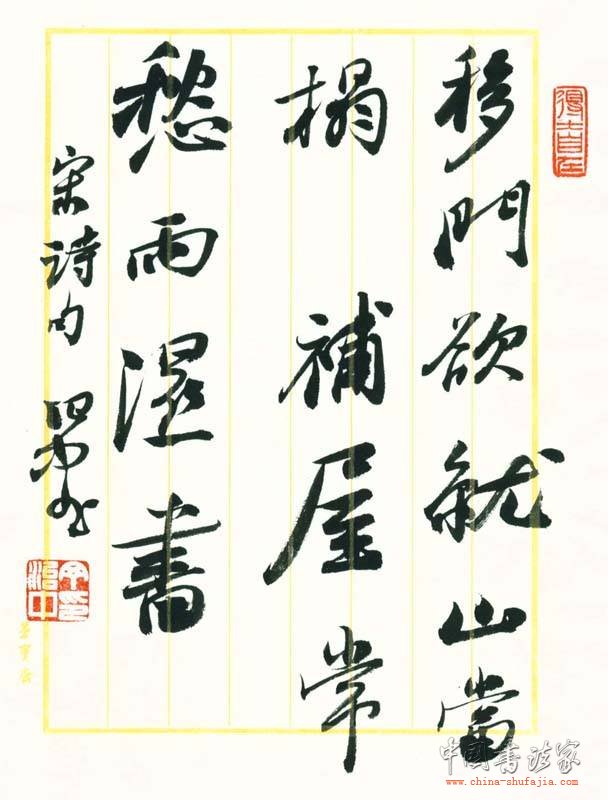 移門欲就山當
榻 補屋常
愁雨濕書
宋诗句
得大自在
中國書法家
www.china-shufajia.com